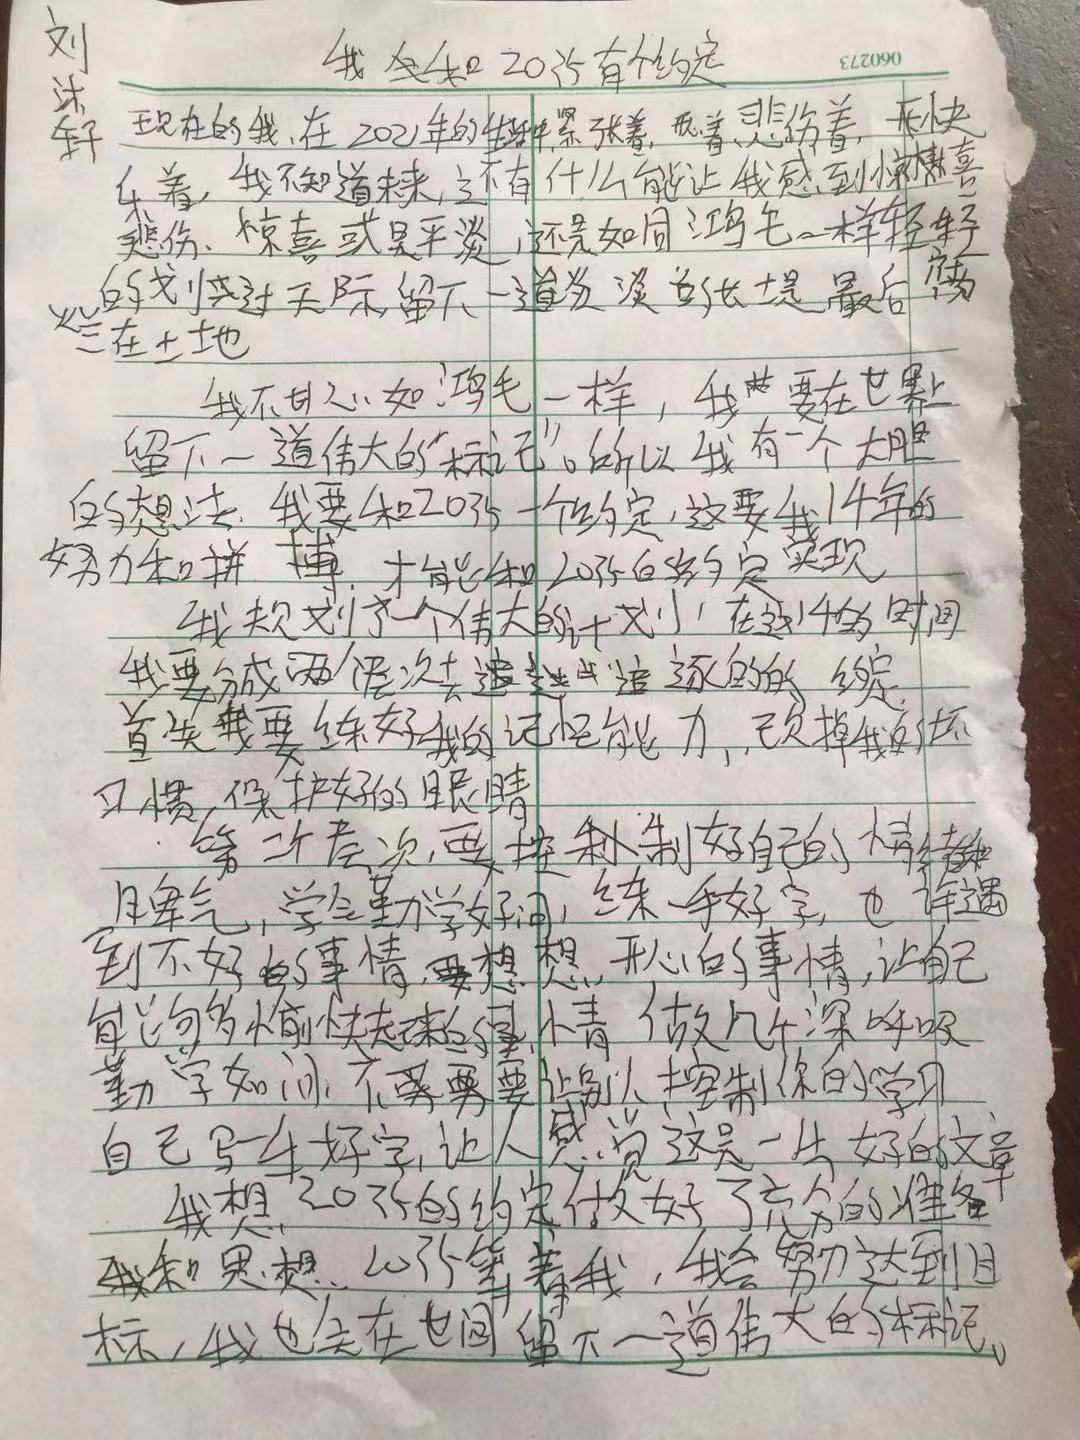 刘
沐
轩
我会和2035有个约定
060273
现在的我,在2021年的生活中紧张着,悲伤着,快
乐着,我不知道未来,还有什么能让我感到惊喜
悲伤、惊喜或是平淡,还是如同鸿毛一样轻轻
的划过天际,留下一道淡的长堤,最后腐
烂在土地
我不甘心如鸿毛一样,我要在世界上
留下一道伟大的“标记”。所以我有一个大胆
的想法,我要和2035一个约定,这要我14年的
努力和拼搏,才能和2035的约定实现
我规划了一个伟大的计划,在这14年的时间
我要分成两个层次去追逐的的约定,
首先我要练好我的记忆能力,改掉我的坏
习惯,保护好的眼睛
第二个层次,要控制好自己的情绪和
脾气,学会勤学好问,练一手好字,也许遇
到不好的事情,要想想,开心的事情,让自己
能够多愉快起来的事情 做几个深呼吸
勤学如问,不要要让别人控制你的学习
自己写一手好字,让人感觉这是一片好的文章
我想,2035的约定做好了充分的准备
我和思想,2035等着我,我会努力达到目
标,我也会在世间留下一道伟大的标记。